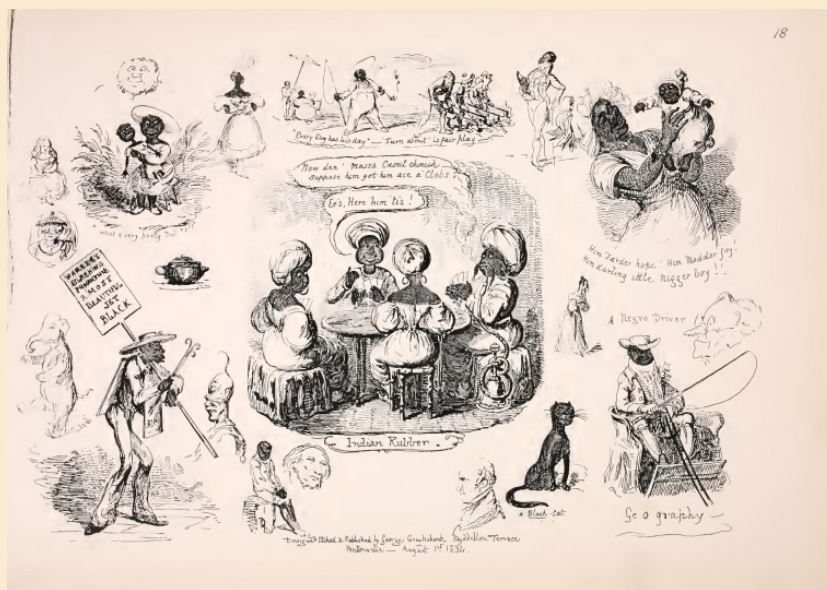 18
"Every Dog has his day" — Turn about is fair play
Now den' Massa
suppose him got him ace a' Clobs?
Ee's, Here him tis!
"what a very pretty Doll"!
Him Farder hope - Him Modder joy!
Him darling little Nigger boy!!
WARREN'S
BLACKING
A MOST
BEAUTIFUL
JET
BLACK
A Negro Driver
Indian Rubber.
a Black-Cat
Geography —
Designed Etched & Published by George Cruikshank Myddelton Terrace
Pentonville — August 1st 1834.